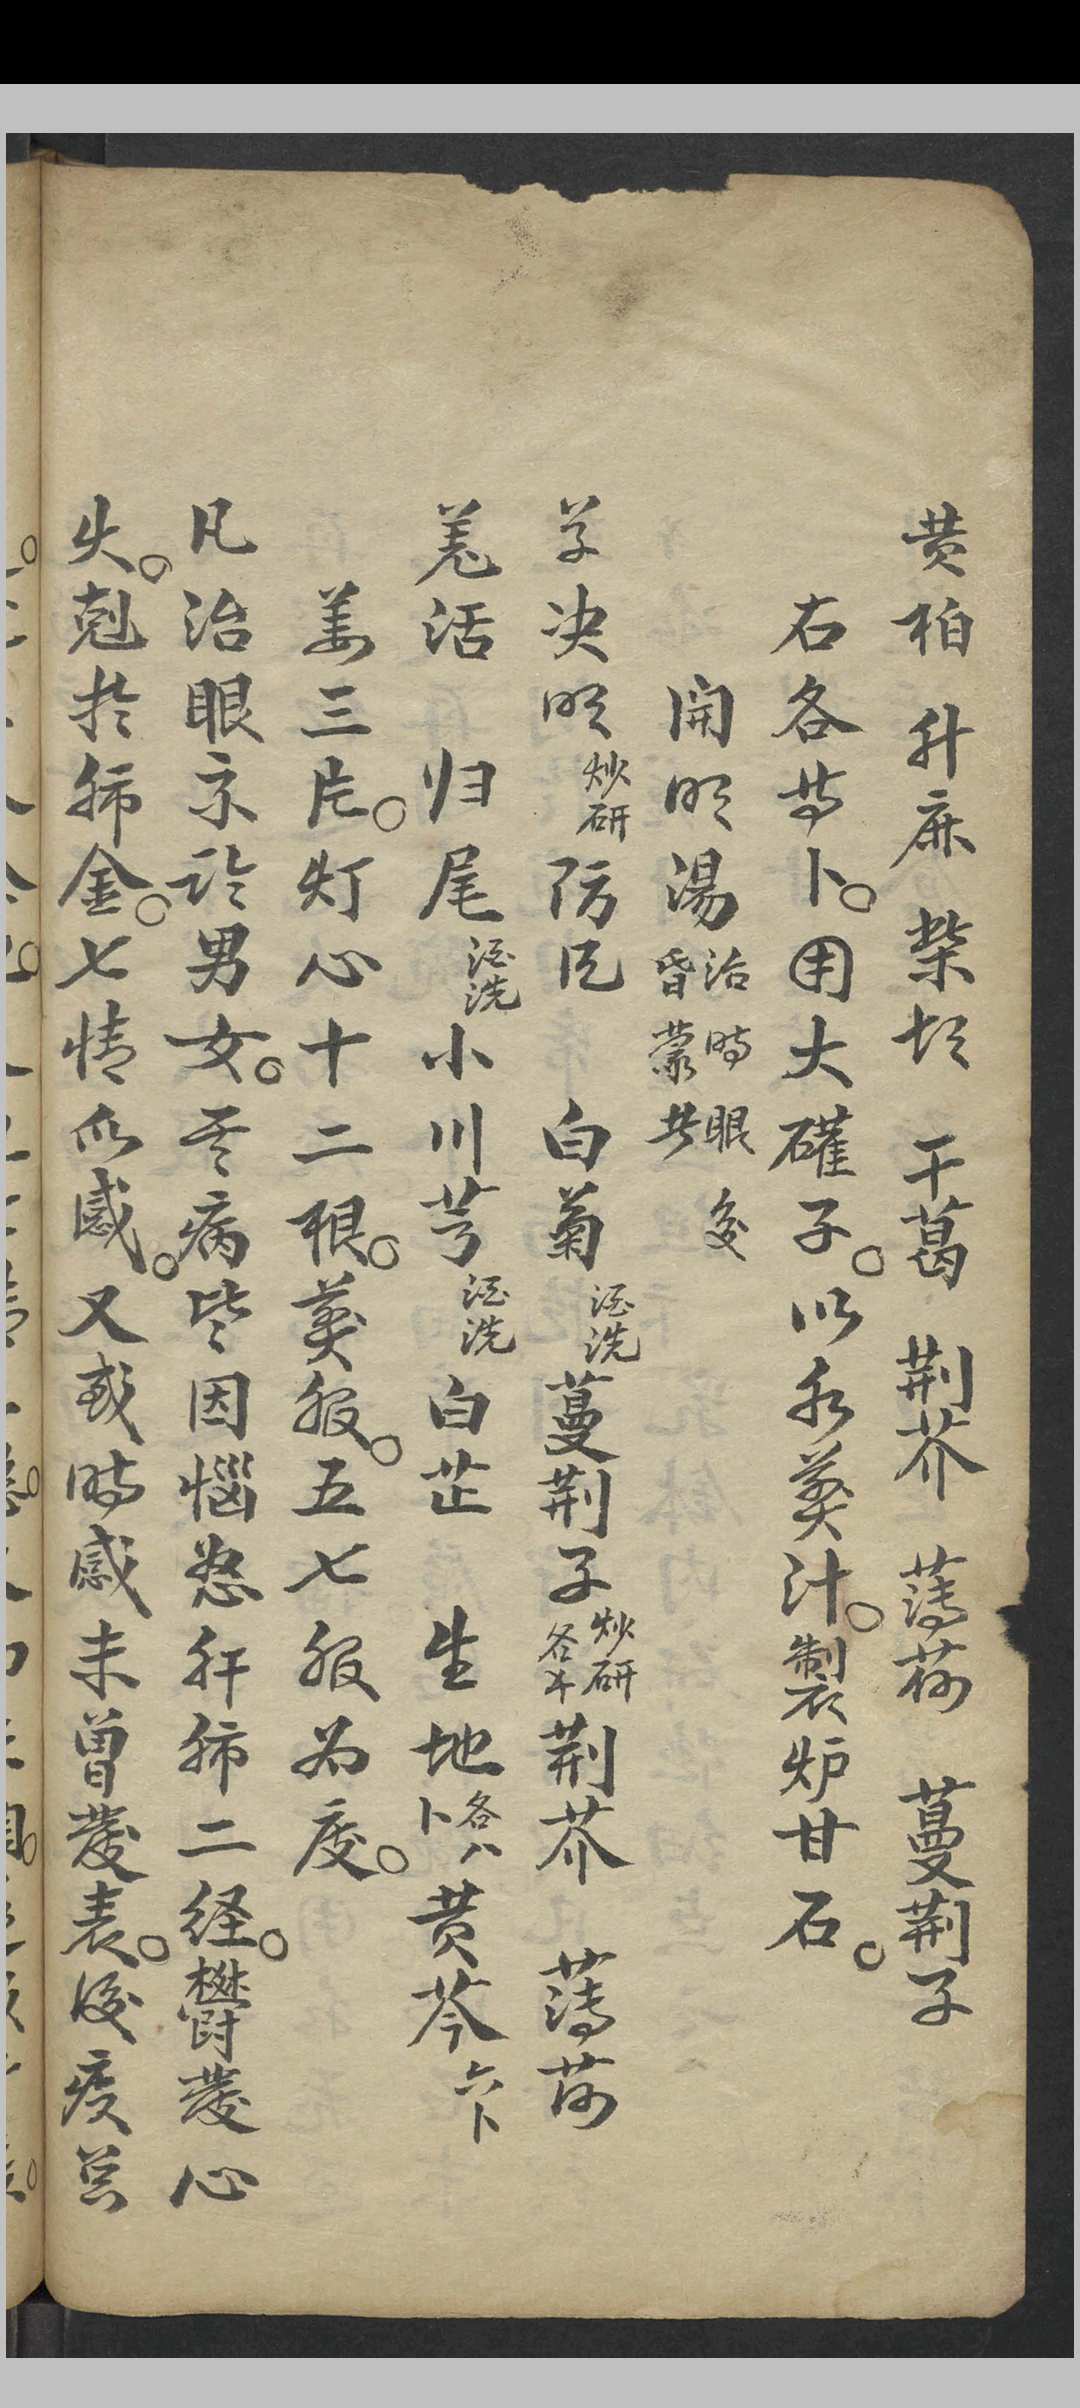 黄柏 升麻 柴胡 干葛 荆芥 薄荷 蔓荆子
右各等卜。用大礶子。以水煎汁。製炉甘石。
開明湯 治時眼後昏蒙者
草决明 炒研 防風 白菊 酒洗 蔓荆子 炒研各半 荆芥 薄荷
羌活 归尾 酒洗 小川芎 酒洗 白芷 生地 各八卜 黄芩 六卜
姜三片。灯心十二根。煎服。五七服为度。
凡治眼京訡男女。其病皆因惱怒肝肺二経。鬱發心
火。剋於肺金。七情所感。又或時感未曾發表。後疫